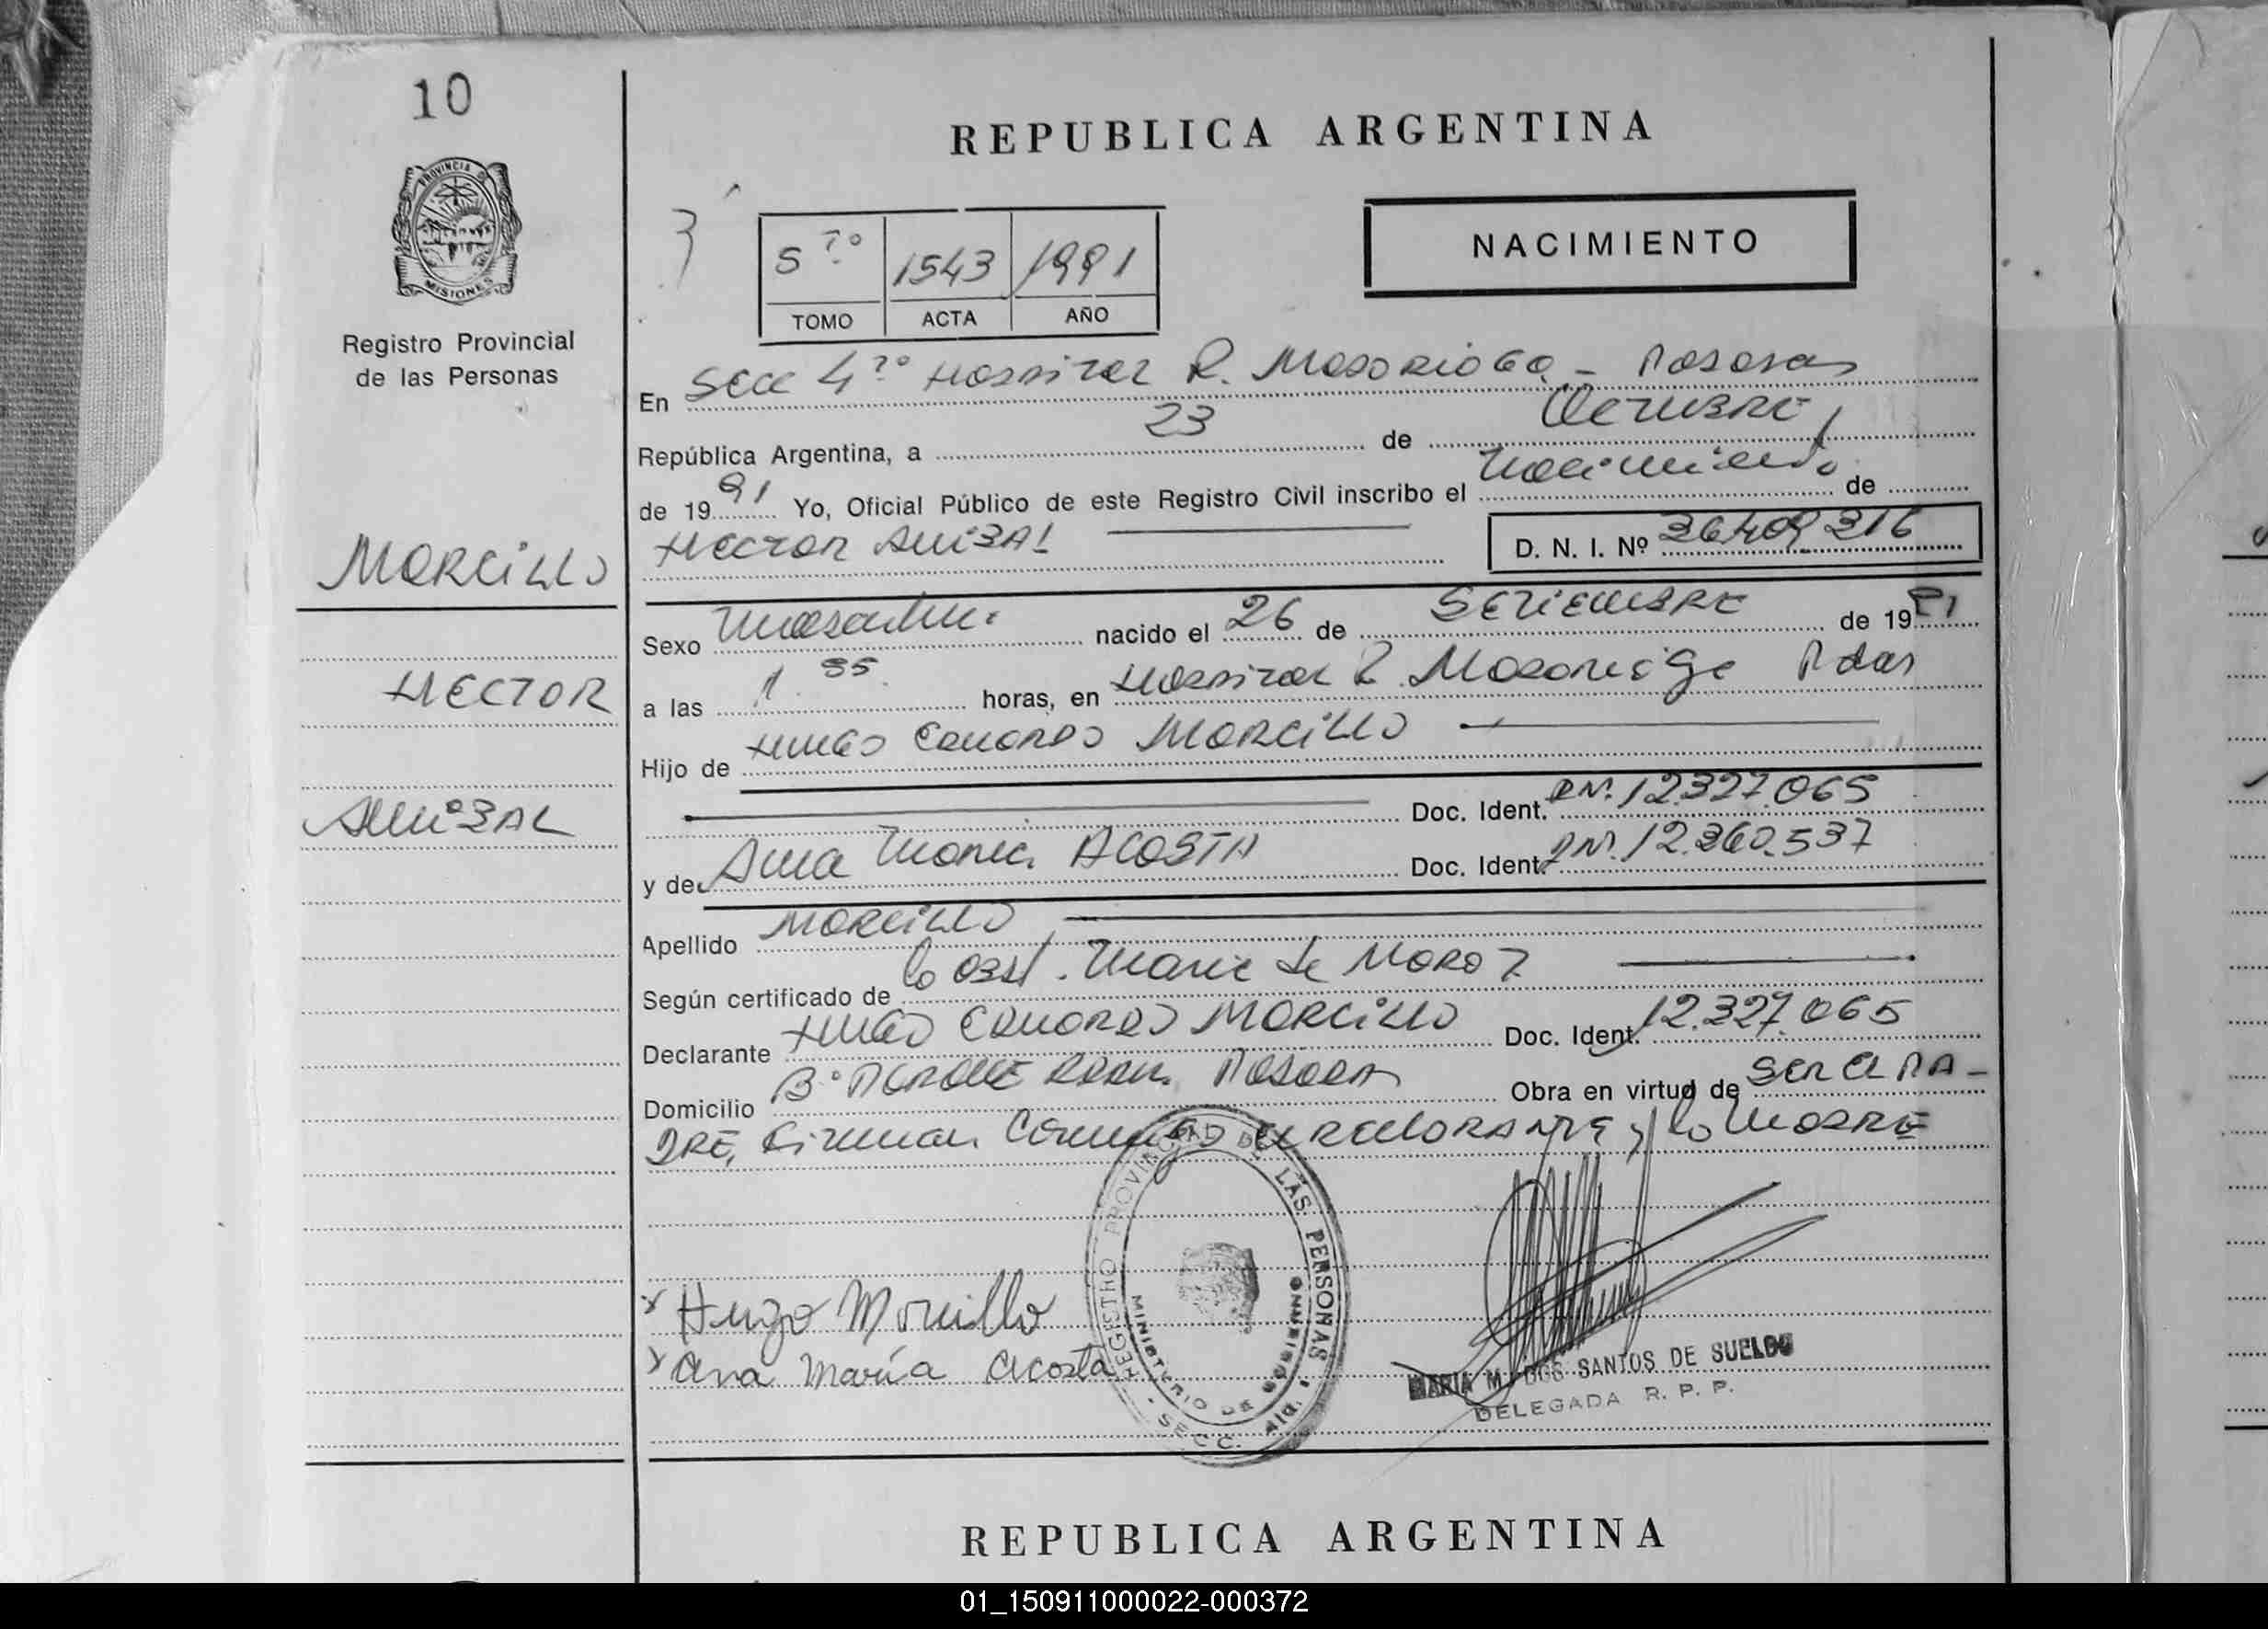 10
REPUBLICA ARGENTINA
PROVINCIA DE
MISIONES
Registro Provincial
de las Personas
5 1543 1991
TOMO ACTA AÑO
NACIMIENTO
En Secc 4 Hospital R. Madariaga - Posadas
República Argentina, a 23 de Octubre
de 19 91 Yo, Oficial Público de este Registro Civil inscribo el Nacimiento de
Hector Anibal D. N. I. Nº 36.409.316
MORCILLO
HECTOR
ANIBAL
Sexo Masculino nacido el 26 de SETIEMBRE de 19 91
a las 1.35 horas, en Hospital R. Madariaga Pdas
Hijo de Hugo Eduardo MORCILLO
Doc. Ident. DNI. 12.327.065
y de Ana Maria ACOSTA Doc. Ident. DNI. 12.360.537
Apellido MORCILLO
Según certificado de la Obst. Maria de
Declarante Hugo Eduardo MORCILLO Doc. Ident. 12.327.065
Domicilio Bº Posadas Obra en virtud de Ser el PA-
DRE, Firman el declarante y la MADRE
Hugo Morcillo
Ana María Acosta
REGISTRO PROVINCIAL DE LAS PERSONAS
MINISTERIO DE GOBIERNO
SECC. 4ta.
MARIA M. DOS SANTOS DE SUELDO
DELEGADA R. P. P.
REPUBLICA ARGENTINA
01_150911000022-000372